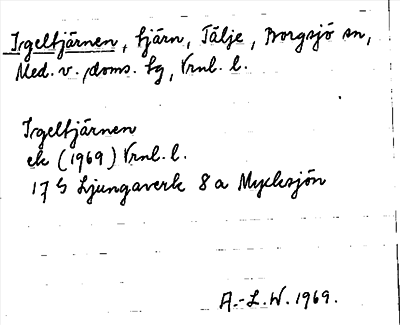 Igeltjärnen, tjärn, Tälje, Borgsjö sn,
Med. v. doms. tg, Vrnl. l.
Igeltjärnen
ek (1969) Vrnl. l.
17 G Ljungaverk 8 a Mycksjön
A.-L. W. 1969.